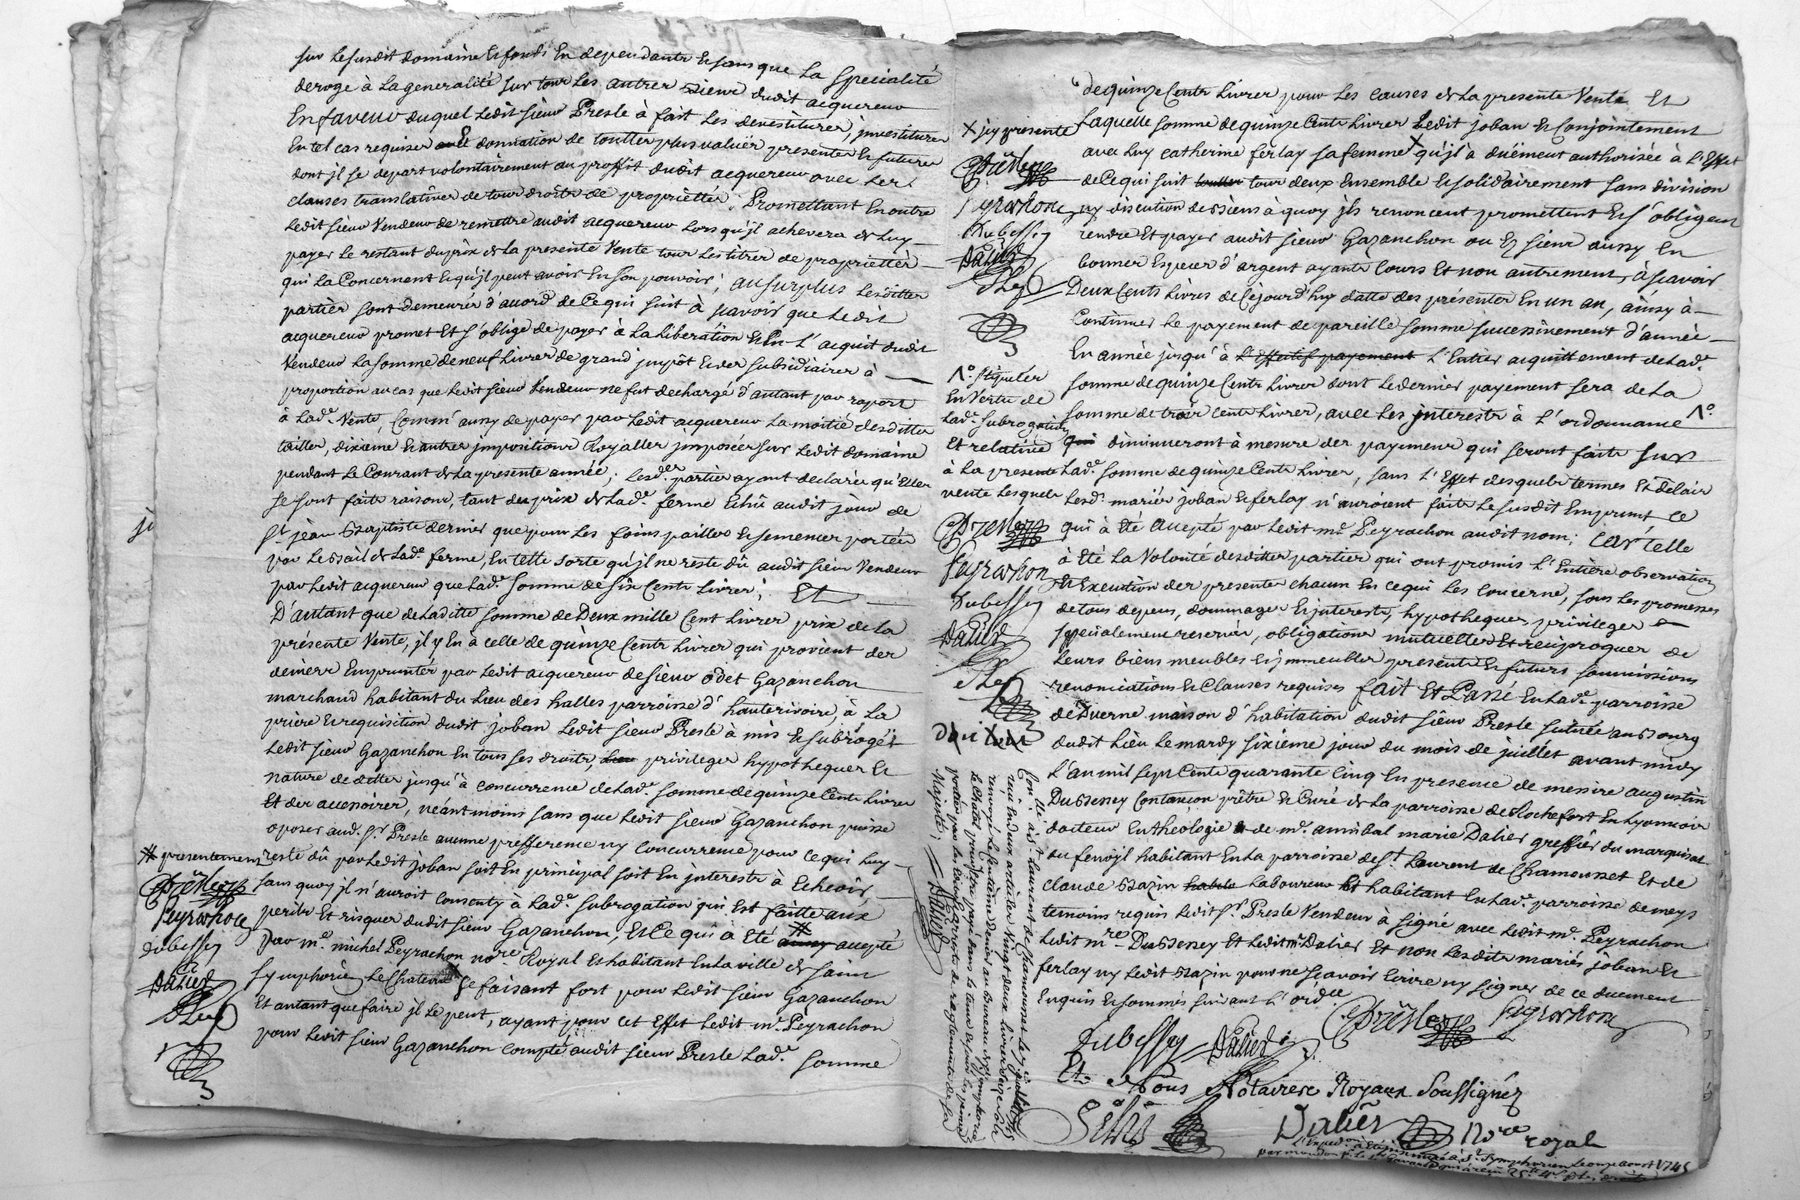 sur le susdit domaine et fonds en dependants et sans que la specialité
deroge à la generalité sur tous les autres siens dudit acquereur
En faveur duquel ledit sieur Presle à fait les devestitures, investitures
En tel cas requises avec donnation de touttes plus valües presentes et futures
dont jl se depart volontairement au proffit dudit acquereur avec les
clauses translatives de tous droits de proprietté; Promettant En outre
ledit sieur Vendeur de remettre audit acquereur lorsqu'jl achevera de luy
payer le restant du prix de la presente Vente tous les titres de proprietté
qui la concernent et qu'jl peut avoir En son pouvoir; au surplus lesdittes
parties sont demeurées d'acord de ce qui suit à scavoir que ledit
acquereur promet et s'oblige de payer à la liberation et En l'acquit dudit
Vendeur la somme de neuf livres de grand jmpôt et des subsidiaires à
proportion au cas que ledit sieur Vendeur ne fut dechargé d'autant par raport
à lad.e Vente, comm'aussy de payer par ledit acquereur la moitié desdittes
tailles, dixieme et autres jmpositions Royalles jmposées sur ledit domaine
pendant le courant de la presente année; lesd.es parties ayant declaré qu'Elles
se sont faits raisons, tant du prix de lad.e ferme Echû audit jour de
St jean Baptiste dernier que pour les foins pailles et semences portées
par le Bail de lad.e ferme, En telle sorte qu'jl ne reste dû audit sieur Vendeur
par ledit acquereur que lad.e somme de six Cents livres; Et
D'autant que de laditte somme de Deux mille Cent livres prix de la
présente Vente, jl y En à celle de quinze Cents livres qui provient des
deniers Empruntés par ledit acquereur de sieur odet Gazanchon
marchand habitant du lieu des halles parroisse d'hauterivoire, à la
priere et requisition dudit joban ledit sieur Presle à mis et subrogé
ledit sieur Gazanchon En tous ses droits, privileges hypotheques et
nature de dettes jusqu'à concurrence de lad.e somme de quinze Cents livres
Et des accessoires, néantmoins sans que ledit sieur Gazanchon puisse
oposer aud. Sr Presle aucune prefference ny concurrence pour ce qui luy
# presentement
reste dû par ledit joban soit En principal soit En jnterests à Echeoir
sans quoy jl n'auroit consenty à lad.e subrogation qui Est faitte aux
perils Et risques dudit sieur Gazanchon, Et Ce qui à Eté # accepté
par m.e michel Peyrachon no.re Royal Et habitant En la ville de saint
symphorien le Chateau se faisant fort pour ledit sieur Gazanchon
Et autant que faire jl le peut, ayant pour cet Effet ledit m.e Peyrachon
pour ledit sieur Gazanchon compté audit sieur Presle lad.e somme
Presle
Peyrachon
Dubessey
Dalier
de quinze Cents livres pour les causes de la presente Vente Et
Laquelle somme de quinze Cents livres ledit joban Et Conjointement
X jcy presente
avec luy catherine ferlay sa femme X qu'jl à düement authorisée à l'Effet
de Ce qui suit tous deux Ensemble Et solidairement sans division
ny discution de Biens à quoy jls renoncent promettent Et s'obligent
rendre Et payer audit sieur Gazanchon ou Es siens aussy En
bonnes Especes d'argent ayants Cours Et non autrement, à scavoir
Deux Cents livres de Cejourd'huy datte des présentes En un an, ainsy à
Continuer le payement de pareille somme successivement d'année
En année jusqu'à l'Effectif payement l'Entier acquittement de lad.e
somme de quinze Cents livres dont le dernier payement sera de la
somme de trois Cents livres, avec les jnterests à l'ordonnance
qui diminueront à mesure des payements qui seront faits sur
Lad.e somme de quinze Cents livres, sans l'Effet desquels termes Et délais
lesd. mariés joban Et ferlay n'auroient faits le susdit Emprunt ce
qui à Eté accepté par ledit m.e Peyrachon audit nom; Car telle
à Eté la Volonté desdittes parties qui ont promis l'Entiere observation
Et Execution des presentes chacun En ce qui les concerne, sous les promesses
de tous depens, dommages Et jnterests, hypotheques privileges
specialement reservés, obligations mutuelles Et reciproques de
leurs biens meubles Et jmmeubles presents Et futurs soumissions
renonciations Et Clauses requises fait Et Passé En lad.e parroisse
de Duerne maison d'habitation dudit sieur Presle située au Bourg
dudit lieu le mardy sixieme jour du mois de juillet avant midy
L'an mil sept Cents quarante Cinq En presence de messire augustin
Dubessey Contanson prêtre Et Curé de la parroisse de Rochefort En Lyonnois
docteur En théologie de m.e annibal marie Dalier greffier du marquisat
du fenoyl habitant En la parroisse de St Laurent de Chamousset Et de
claude Bazin laboureur Et habitant En lad.e parroisse de meys
temoins requis ledit Sr Presle Vendeur à signé avec ledit m.e Peyrachon
ledit m.re Dubessey Et ledit m.e Dalier Et non lesdits mariés joban Et
ferlay ny ledit Bazin pour ne scavoir Ecrire ny signer de ce duement
Enquis Et sommés suivant l'ord.ce
1° stipulés
En Vertu de
lad.e subrogation
Et relative
à la presente
vente lesquels
Presle
Peyrachon
Dubessey
Dalier
Dubessey Dalier Presle Peyrachon
Et Nous Notaires Royaux Soussignéz
Dalier No.re royal